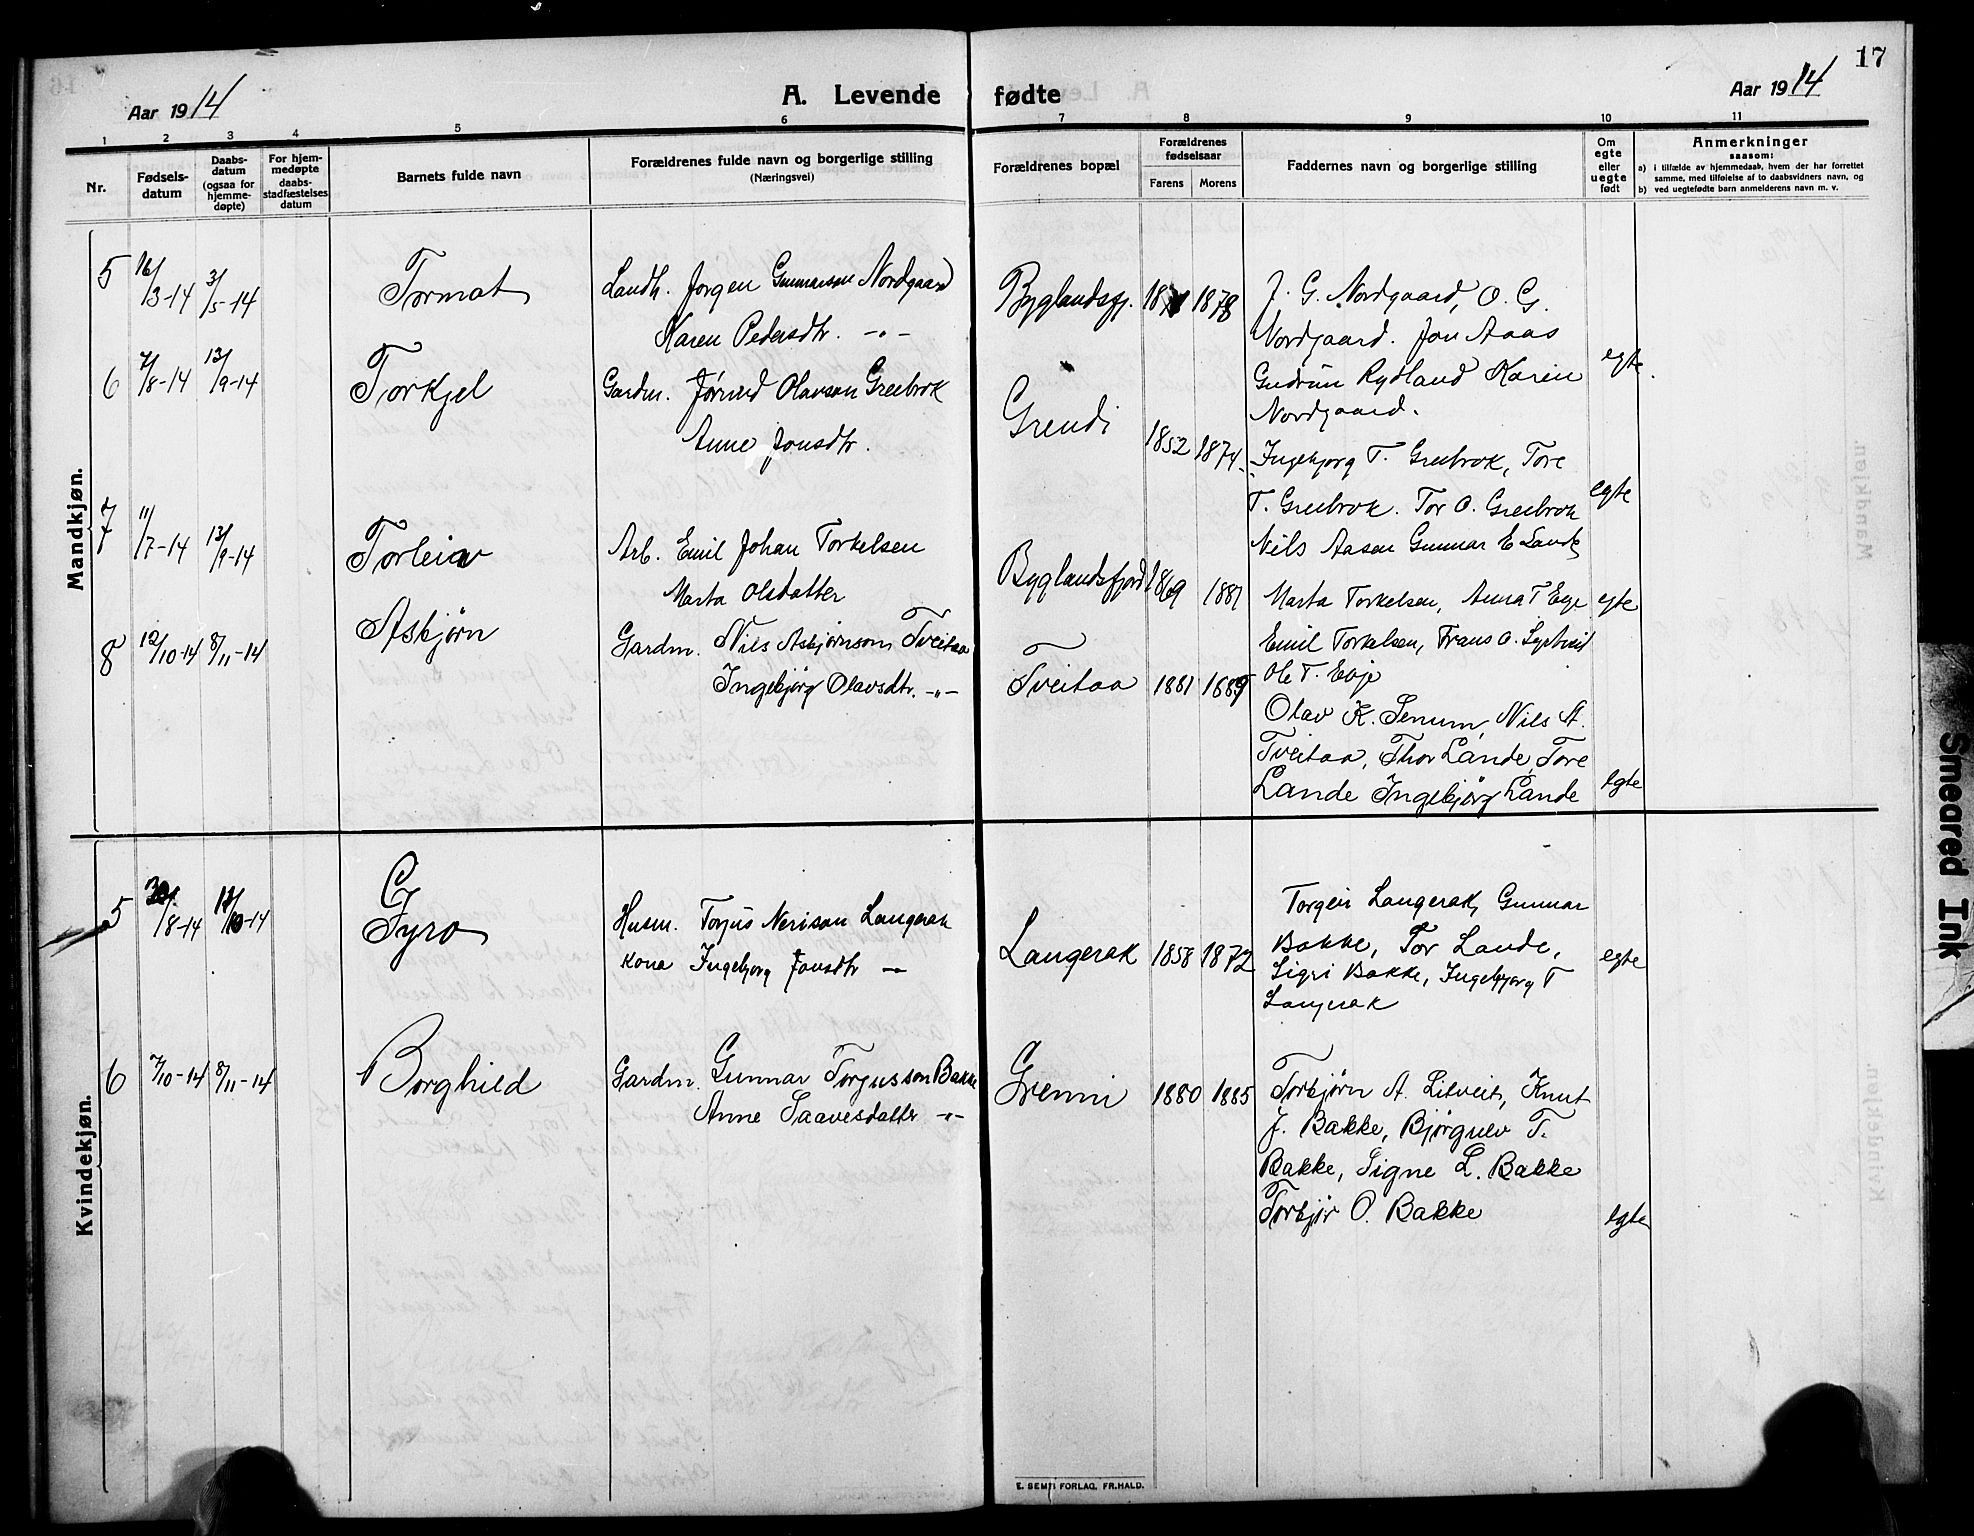 17
Aar 1914 A. Levende fødte Aar 1914
1 2 3 4 5 6 7 8 9 10 11
Nr. Fødsels-datum Daabs-datum (ogsaa for hjemme-døpte) For hjem-medøpte daabs-stadfæstelses datum Barnets fulde navn Forældrenes fulde navn og borgerlige stilling (Næringsvei) Forældrenes bopæl Forældrenes fødselsaar Farens Morens Faddernes navn og borgerlige stilling Om egte eller uegte født Anmerkninger saasom:
a) i tilfælde av hjemmedaab, hvem der har forrettet samme, med tilføielse af to daabsvidners navn, og
b) ved uegtefødte barn anmelderens navn m. v.
Mandkjøn.
5 16/3-14 3/5-14 Tormot Landh. Jorgen Gunnarsen Nordgaard
Karen Pedersdtr. -"-
Byglandsfj. 1878
J. G. Nordgaard, O. G.
Nordgaard. Jon Aaas
Gudrun Rydland Karen
Nordgaard.
egte
6 7/8-14 13/9-14 Torkjel Gardm. Olavson Greibrok
Anne Jonsdtr.
Grendi 1852 1874
Ingebjorg T. Greibrok, Tore
T. Greibrok. Tor O. Greibrok
Nils Aasen Gunnar E Lande
egte
7 11/7-14 13/9-14 Torleiv Arb. Emil Johan Torkelsen
Marta Olsdatter
Byglandsfjord 1869 1881
Marta Torkelsen, Anna T Evje
Emil Torkelsen, Frans O.
Ole T. Evje
egte
8 12/10-14 8/11-14 Asbjørn Gardm. Nils Asbjørnson Tveitaa
Ingebjørg Olavsdtr. -"-
Tveitaa 1881 1889
Olav K. Senum, Nils A.
Tveitaa, Thor Lande, Tore
Lande Ingebjørg Lande
egte
Kvindekjøn.
5 /8-14 /10-14 Gyro Husm. Torjus Nerison Langerak
Kona Ingebjorg Jonsdtr -"-
Langerak 1858 1872
Torgeir Langerak, Gunnar
Bakke, Tor Lande,
Sigri Bakke, Ingebjorg T
Langerak
egte
6 7/10-14 8/11-14 Borghild Gardm. Gunnar Torgusson Bakke
Anne Saavesdatter -"-
Grenni 1880 1885
Torbjørn A. Litveit, Knut
J. Bakke, Bjørgulv T.
Bakke, Signe L. Bakke
Torbjør O. Bakke
egte
E. SEM'S FORLAG, FR.HALD.
Smeared Ink